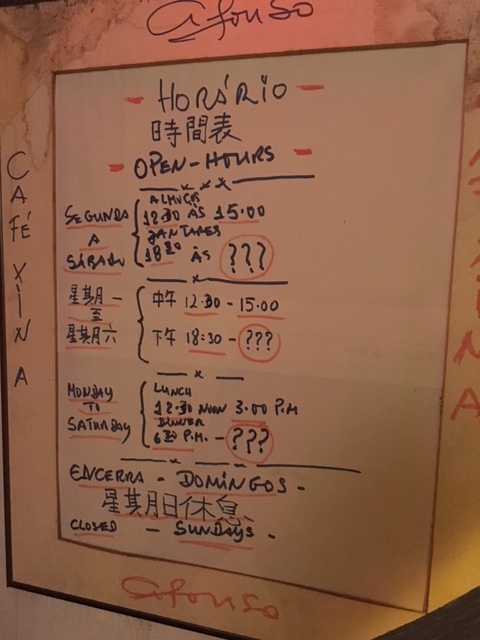 afonso
- HORÁRIO -
時間表
- OPEN-HOURS -
SEGUNDA
A
SÁBADO
ALMOÇOS
12:30 ÀS 15.00
JANTARES
18:30 ÀS ???
星期月一
至
星期月六
中午 12:30 - 15.00
下午 18:30 - ???
MONDAY
TO
SATURDAY
LUNCH
12:30 NOON 3.00 P.M
DINNER
6:30 P.M. - ???
ENCERRA - DOMINGOS -
星期月日休息
CLOSED - SUNDAYS -
afonso
CAFÉ XINA